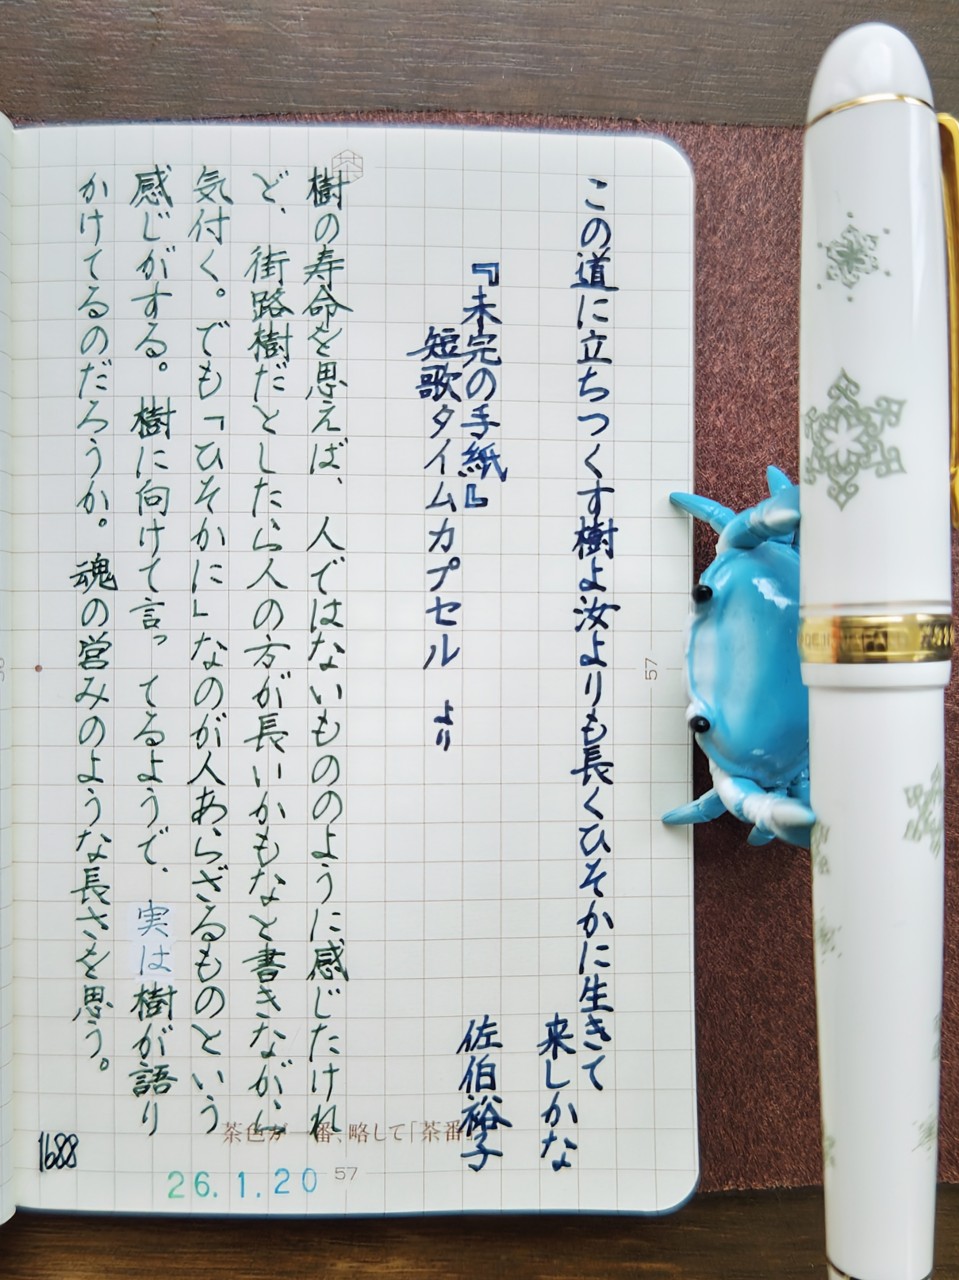 この道に立ちつくす樹よ汝よりも長くひそかに生きて
来しかな
『未完の手紙』
佐伯裕子
短歌タイムカプセル より
樹の寿命を思えば、人ではないもののように感じたけれ
ど、街路樹だとしたら人の方が長いかもなと書きながら
気付く。でも「ひそかに」なのが人あらざるものという
感じがする。樹に向けて言ってるようで、実は樹が語り
かけてるのだろうか。魂の営みのような長さを思う。
茶色が一番、略して「茶番
1688
26.1.20
57
57